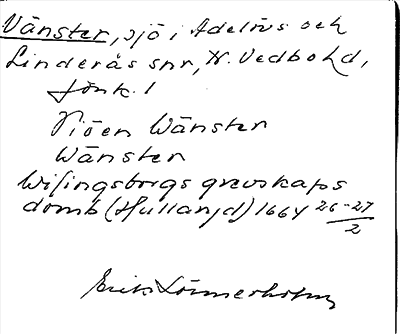 Vänster, sjö i Adelövs och
Linderås snr, N. Vedbo hd,
Jönk. l
Siöen Wänster
Wänster
Wisingsborgs grevskaps
domb (Hullarjd) 1664 26-27/2
Erik Lönnerholm